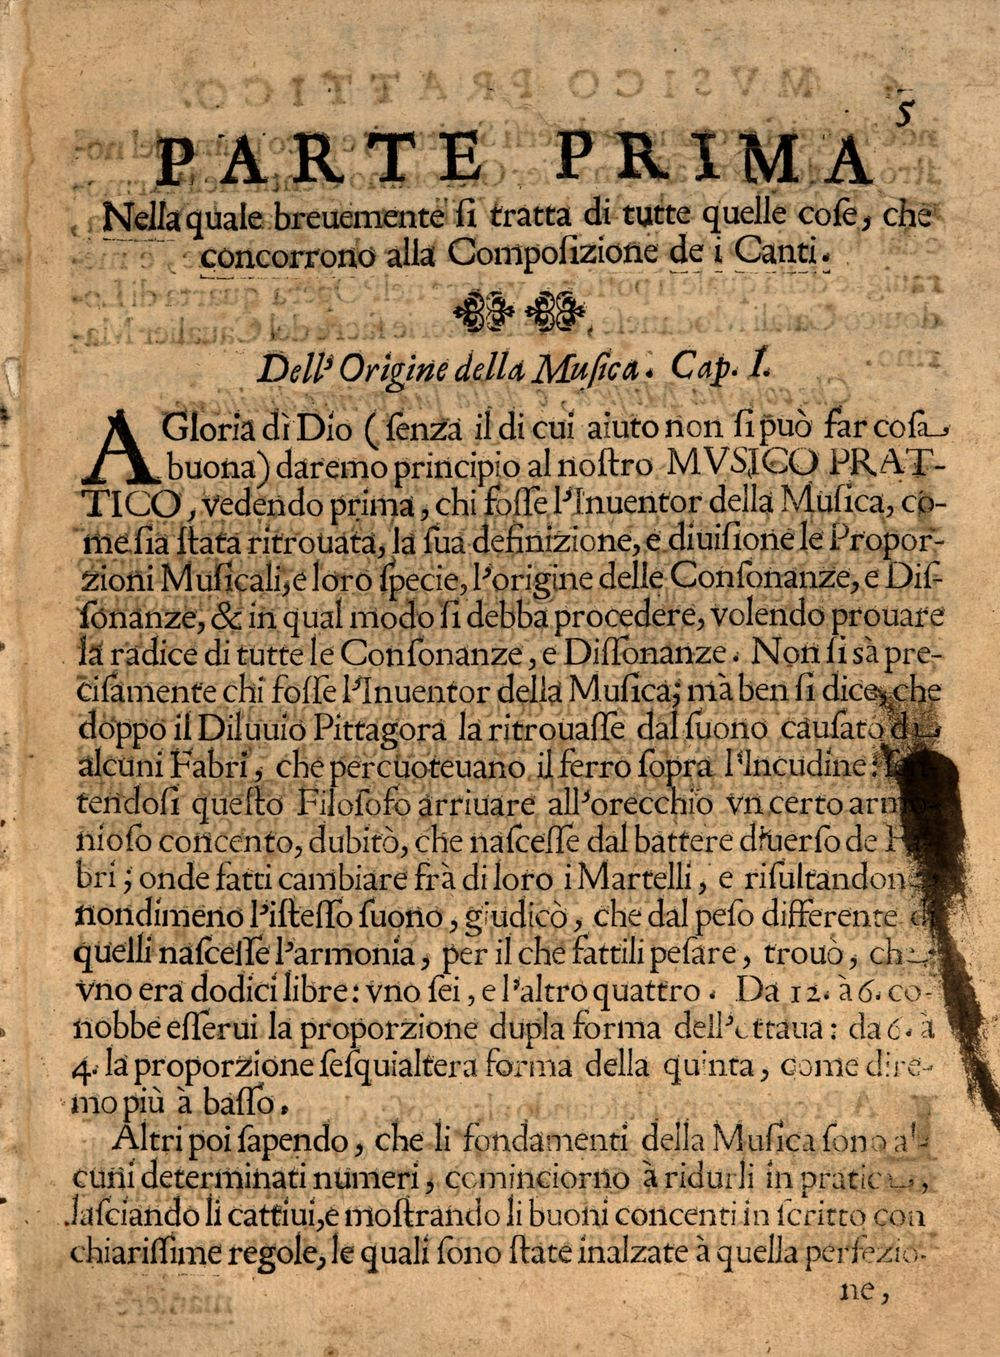 5
PARTE PRIMA
Nella quale breuemente ſi tratta di tutte quelle coſe, che
concorrono alla Compoſizione de i Canti.
Dell' Origine della Muſica. Cap. I.
A Gloria dì Dio (ſenza il di cui aiuto non ſi può far coſa
buona) daremo principio al noſtro MVSICO PRAT-
TICO, vedendo prima, chi foſſe l'Inuentor della Muſica, co-
me ſia ſtata ritrouata, la ſua definizione, e diuiſione le Propor-
zioni Muſicali, e loro ſpecie, l'origine delle Conſonanze, e Diſ-
ſonanze, & in qual modo ſi debba procedere, volendo prouare
la radice di tutte le Conſonanze, e Diſſonanze. Non ſi sà pre-
ciſamente chi foſſe l'Inuentor della Muſica; mà ben ſi dice, che
doppo il Diluuio Pittagora la ritrouaſſe dal ſuono cauſato di
alcuni Fabri, che percuoteuano il ferro ſopra l'Incudine:
tendoſi queſto Filoſofo arriuare all'orecchio vn certo armo-
nioſo concento, dubitò, che naſceſſe dal battere diuerſo de Fa-
bri; onde fatti cambiare frà di loro i Martelli, e riſultandon
nondimeno l'iſteſſo ſuono, giudicò, che dal peſo differente di
quelli naſceſſe l'armonia, per il che fattili peſare, trouò, che
vno era dodici libre: vno ſei, e l'altro quattro. Da 12. à 6. co-
nobbe eſſerui la proporzione dupla forma dell'ottaua: da 6. à
4. la proporzione ſeſquialtera forma della quinta, come dire-
mo più à baſſo.
Altri poi ſapendo, che li fondamenti della Muſica ſono al-
cuni determinati numeri, cominciorno à ridurli in pratica,
laſciando li cattiui, e moſtrando li buoni concenti in ſcritto con
chiariſſime regole, le quali ſono ſtate inalzate à quella perfezio-
ne,